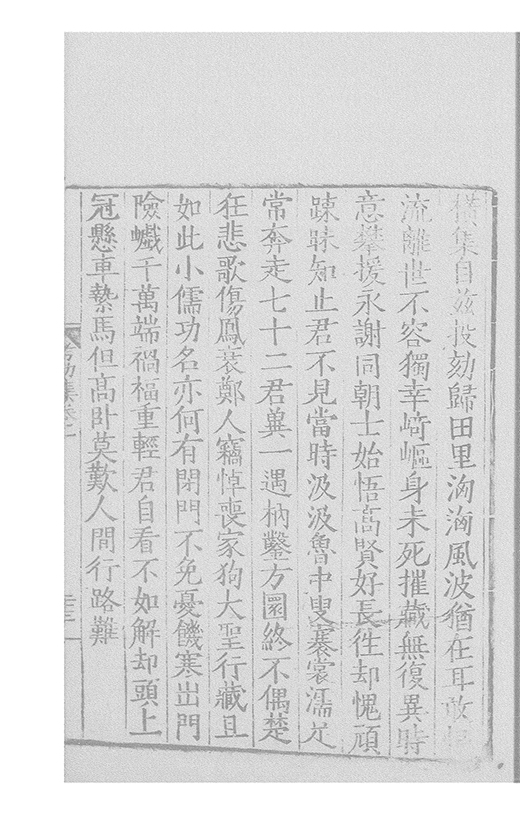 橫集自茲投劾歸田里洶洶風波猶在耳敢
流離世不容獨幸崎嶇身未死摧藏無復異時
意攀援永謝同朝士始悟高賢好長往却愧頑
踈昧知止君不見當時汲汲魯中叟褰裳濡足
常奔走七十二君兾一遇枘鑿方圓終不偶楚
狂悲歌傷鳳衰鄭人竊悼喪家狗大聖行藏且
如此小儒功名亦何有閉門不免憂饑寒出門
險巇千萬端禍福重輕君自看不如解却頭上
冠懸車縶馬但高卧莫歎人間行路難